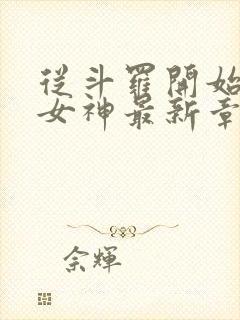 從斗羅開始
女神最新章
佘輝